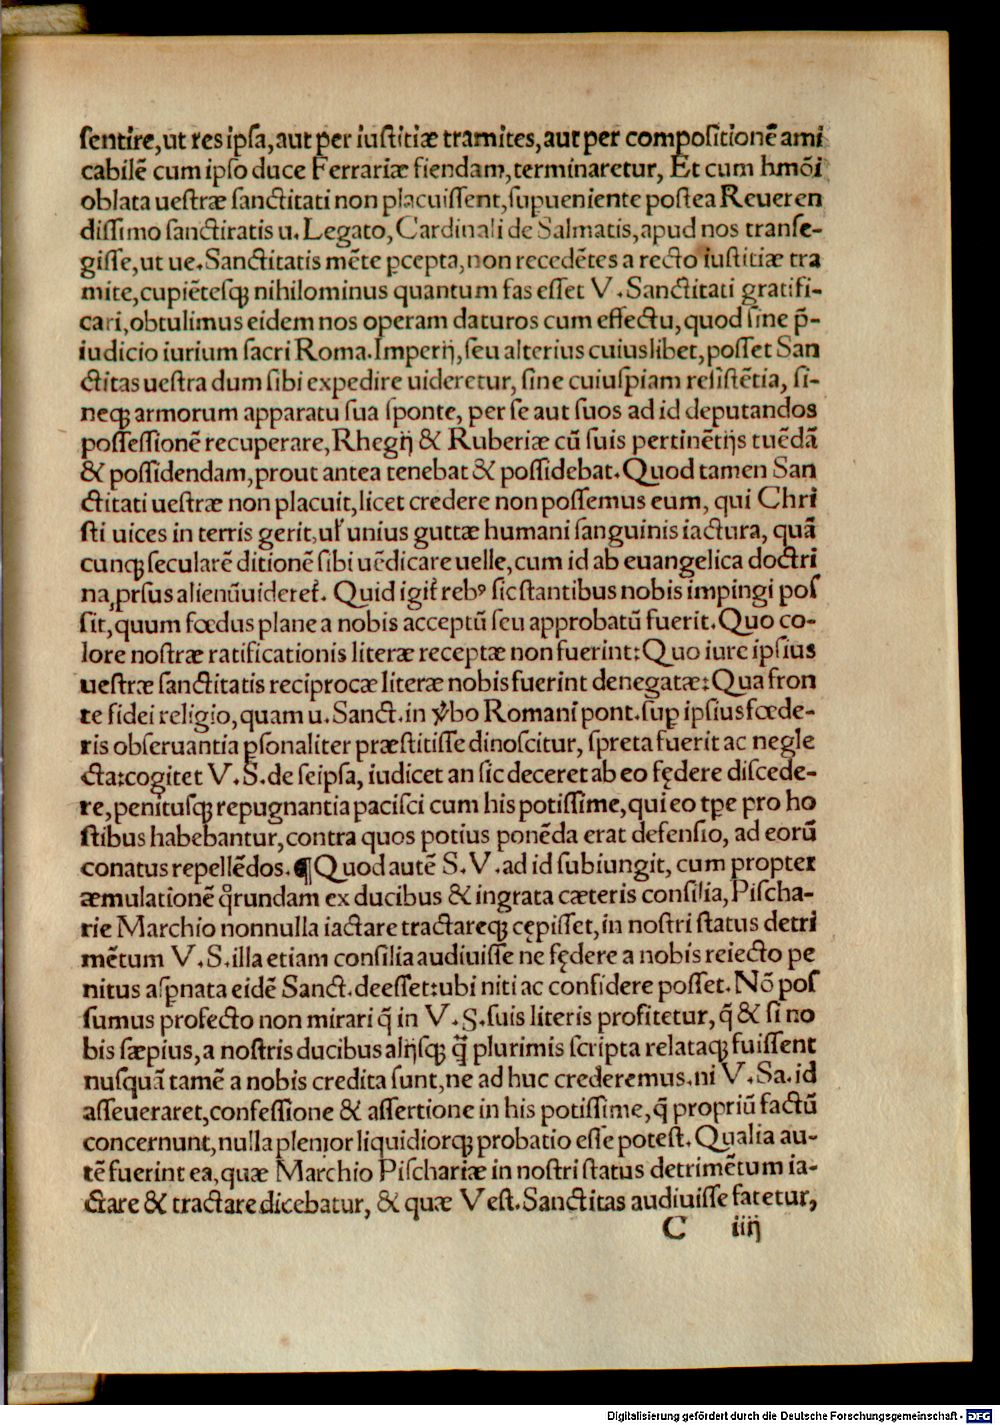 ſentire,ut res ipſa,aut per iuſtitiæ tramites,aut per compoſitionē ami
cabilē cum ipſo duce Ferrariæ fiendam,terminaretur, Et cum hmōi
oblata ueſtræ ſanctitati non placuiſſent,ſupueniente poſtea Reueren
diſſimo ſanctiratis u. Legato, Cardinali de Salmatis,apud nos tranſe-
giſſe,ut ue. Sanctitatis mēte pcepta,non recedētes a recto iuſtitiæ tra
mite,cupiēteſq; nihilominus quantum fas eſſet V. Sanctitati gratifi-
cari,obtulimus eidem nos operam daturos cum effectu,quod ſine p̄-
iudicio iurium ſacri Roma.Imperij,ſeu alterius cuiuslibet,poſſet San
ctitas ueſtra dum ſibi expedire uideretur, ſine cuiuſpiam reſiſtētia, ſi-
neq; armorum apparatu ſua ſponte, per ſe aut ſuos ad id deputandos
poſſeſſionē recuperare,Rhegij & Ruberiæ cū ſuis pertinētijs tuēdā
& poſſidendam,prout antea tenebat & poſſidebat.Quod tamen San
ctitati ueſtræ non placuit,licet credere non poſſemus eum, qui Chri
ſti uices in terris gerit,ul̛ unius guttæ humani ſanguinis iactura, quā
cunq; ſecularē ditionē ſibi uēdicare uelle,cum id ab euangelica doctri
na,prſus alienū uideret̛. Quid igit̛ rebꝰ ſic ſtantibus nobis impingi poſ
ſit,quum fœdus plane a nobis acceptū ſeu approbatū fuerit.Quo co-
lore noſtræ ratificationis literæ receptæ non fuerint:Quo iure ipſius
ueſtræ ſanctitatis reciprocæ literæ nobis fuerint denegatæ:Qua fron
te fidei religio,quam u. Sanct.in ꝟbo Romani pont.ſup ipſius fœde-
ris obſeruantia pſonaliter præſtitiſſe dinoſcitur, ſpreta fuerit ac negle
cta:cogitet V. S.de ſeipſa, iudicet an ſic deceret ab eo fędere diſcede-
re,penituſq; repugnantia paciſci cum his potiſſime,qui eo tpe pro ho
ſtibus habebantur,contra quos potius ponēda erat defenſio, ad eorū
conatus repellēdos.¶Quod autē S.V. ad id ſubiungit, cum propter
æmulationē qͦrundam ex ducibus & ingrata cæteris conſilia,Piſcha-
rie Marchio nonnulla iactare tractareq; cępiſſet,in noſtri ſtatus detri
mētum V.S.illa etiam conſilia audiuiſſe ne fędere a nobis reiecto pe
nitus aſpnata eidē Sanct.deeſſet:ubi niti ac confidere poſſet. Nō poſ
ſumus profecto non mirari q̄ in V.S.ſuis literis profitetur, q̄ & ſi no
bis ſæpius,a noſtris ducibus alijſq; q̄ plurimis ſcripta relataq; fuiſſent
nuſquā tamē a nobis credita ſunt,ne ad huc crederemus.ni V. Sa.id
aſſeueraret,confeſſione & aſſertione in his potiſſime,q̄ propriū factū
concernunt,nulla plenior liquidiorq; probatio eſſe poteſt.Qualia au-
tē fuerint ea,quæ Marchio Piſchariæ in noſtri ſtatus detrimētum ia-
ctare & tractare dicebatur, & quæ Veſt.Sanctitas audiuiſſe fatetur,
C iiij
Digitalisierung gefördert durch die Deutsche Forschungsgemeinschaft - DFG